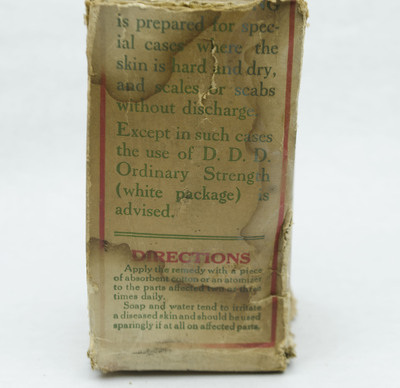 is prepared for spec-
ial cases where the
skin is hard and dry,
and scales or scabs
without discharge.
Except in such cases
the use of D. D. D.
Ordinary Strength
(white package) is
advised.
DIRECTIONS
Apply the remedy with a piece
of absorbent cotton or an atomizer
to the parts affected two or three
times daily.
Soap and water tend to irritate
a diseased skin and should be used
sparingly if at all on affected parts.